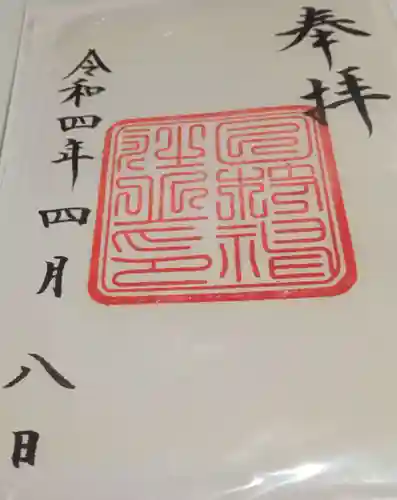 奉拝
令和四年四月八日